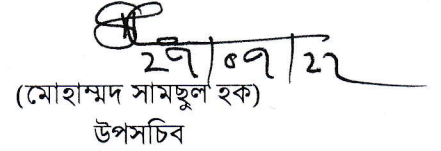 ২৭/০৭/২২
(মোহাম্মদ সামছুল হক)
উপসচিব